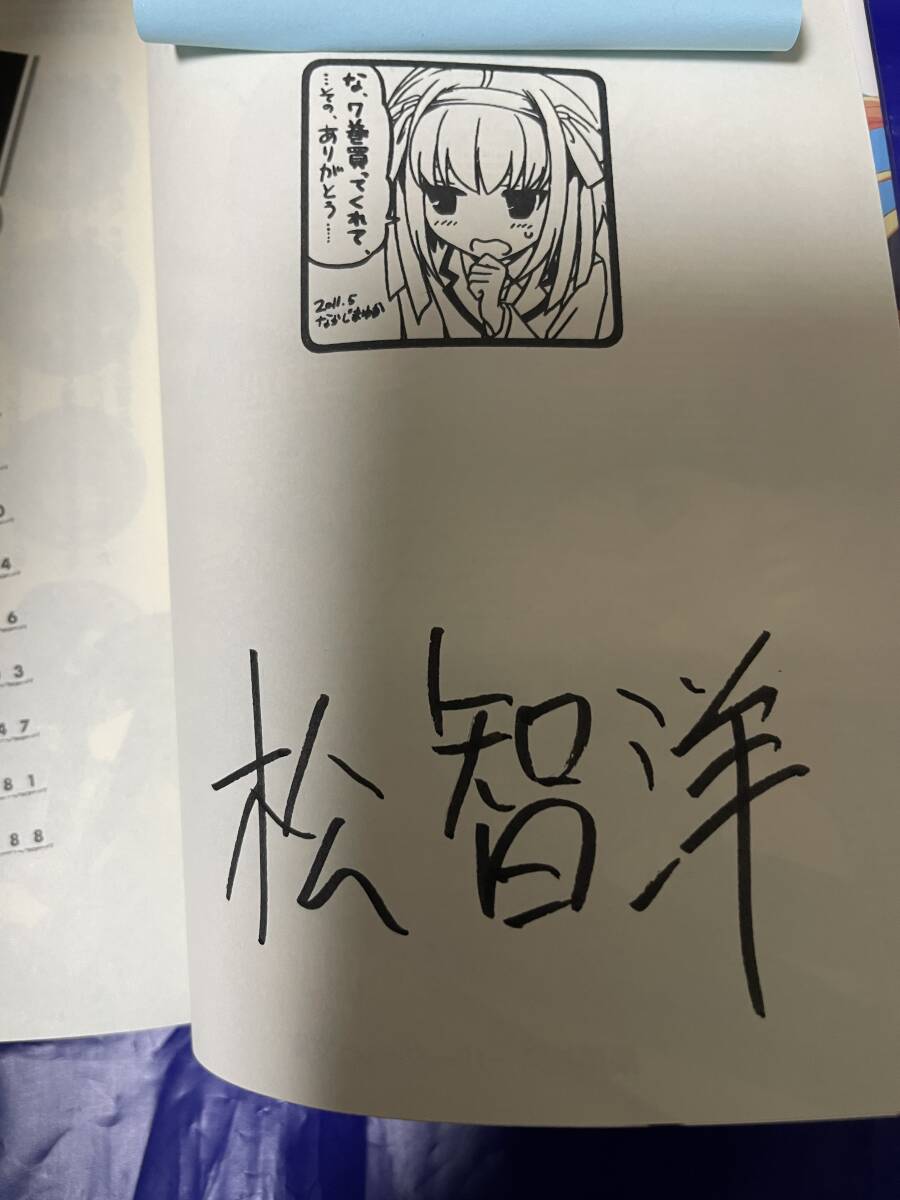 な、7巻買ってくれて、
…その、ありがとう……
2011.5
なかじまゆか
松智洋
0
4
6
3
47
81
88